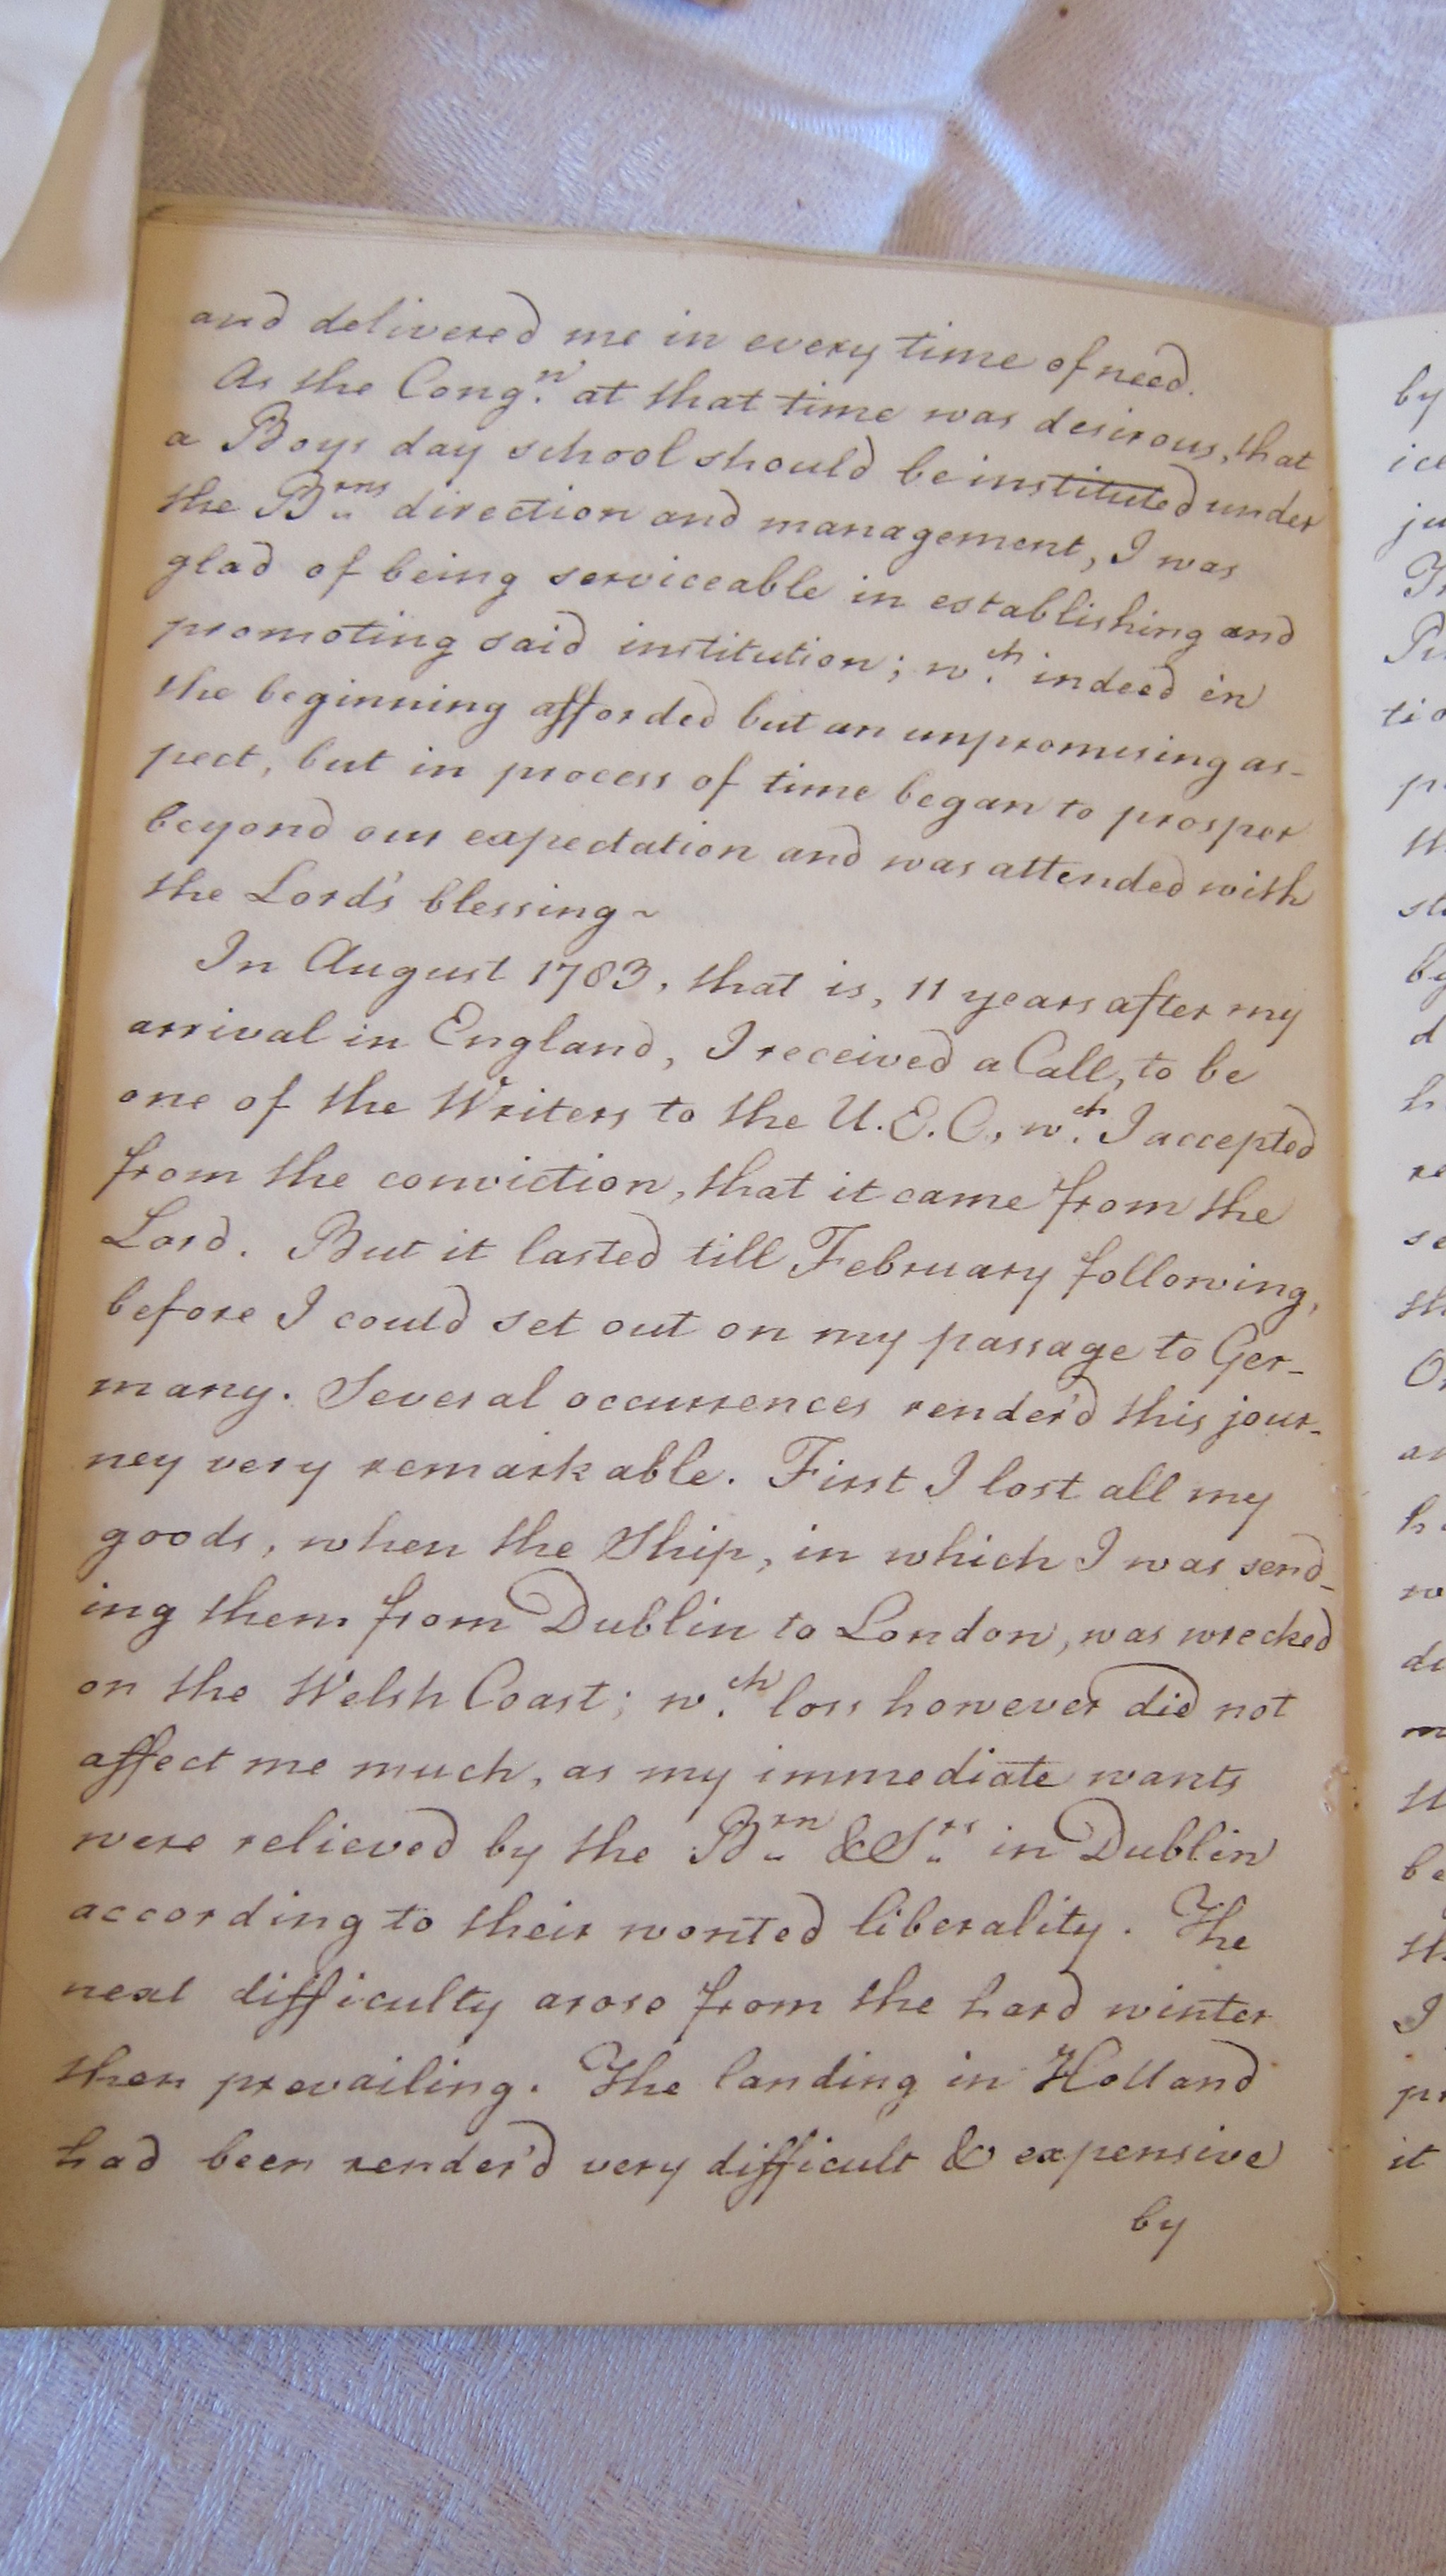 and delivered me in every time of need.
As the Cong.n at that time was desirous, that
a Boys day school should be instituted under
the B.rns direction and management, I was
glad of being serviceable in establishing and
promoting said institution; w.ch indeed in
the beginning afforded but an unpromising as-
pect, but in process of time began to prosper
beyond our expectation and was attended with
the Lord's blessing~
In August 1783, that is, 11 years after my
arrival in England, I received a Call, to be
one of the Writers to the U.E.C., w.ch I accepted
from the conviction, that it came from the
Lord. But it lasted till February following,
before I could set out on my passage to Ger-
many. Several occurrences render'd this jour-
ney very remarkable. First I lost all my
goods, when the Ship, in which I was send-
ing them from Dublin to London, was wrecked
on the Welsh Coast; w.ch loss however did not
affect me much, as my immediate wants
were relieved by the B.rn & S.rs in Dublin
according to their wonted liberality. The
next difficulty arose from the hard winter
then prevailing. The landing in Holland
had been render'd very difficult & expensive
by
by
it